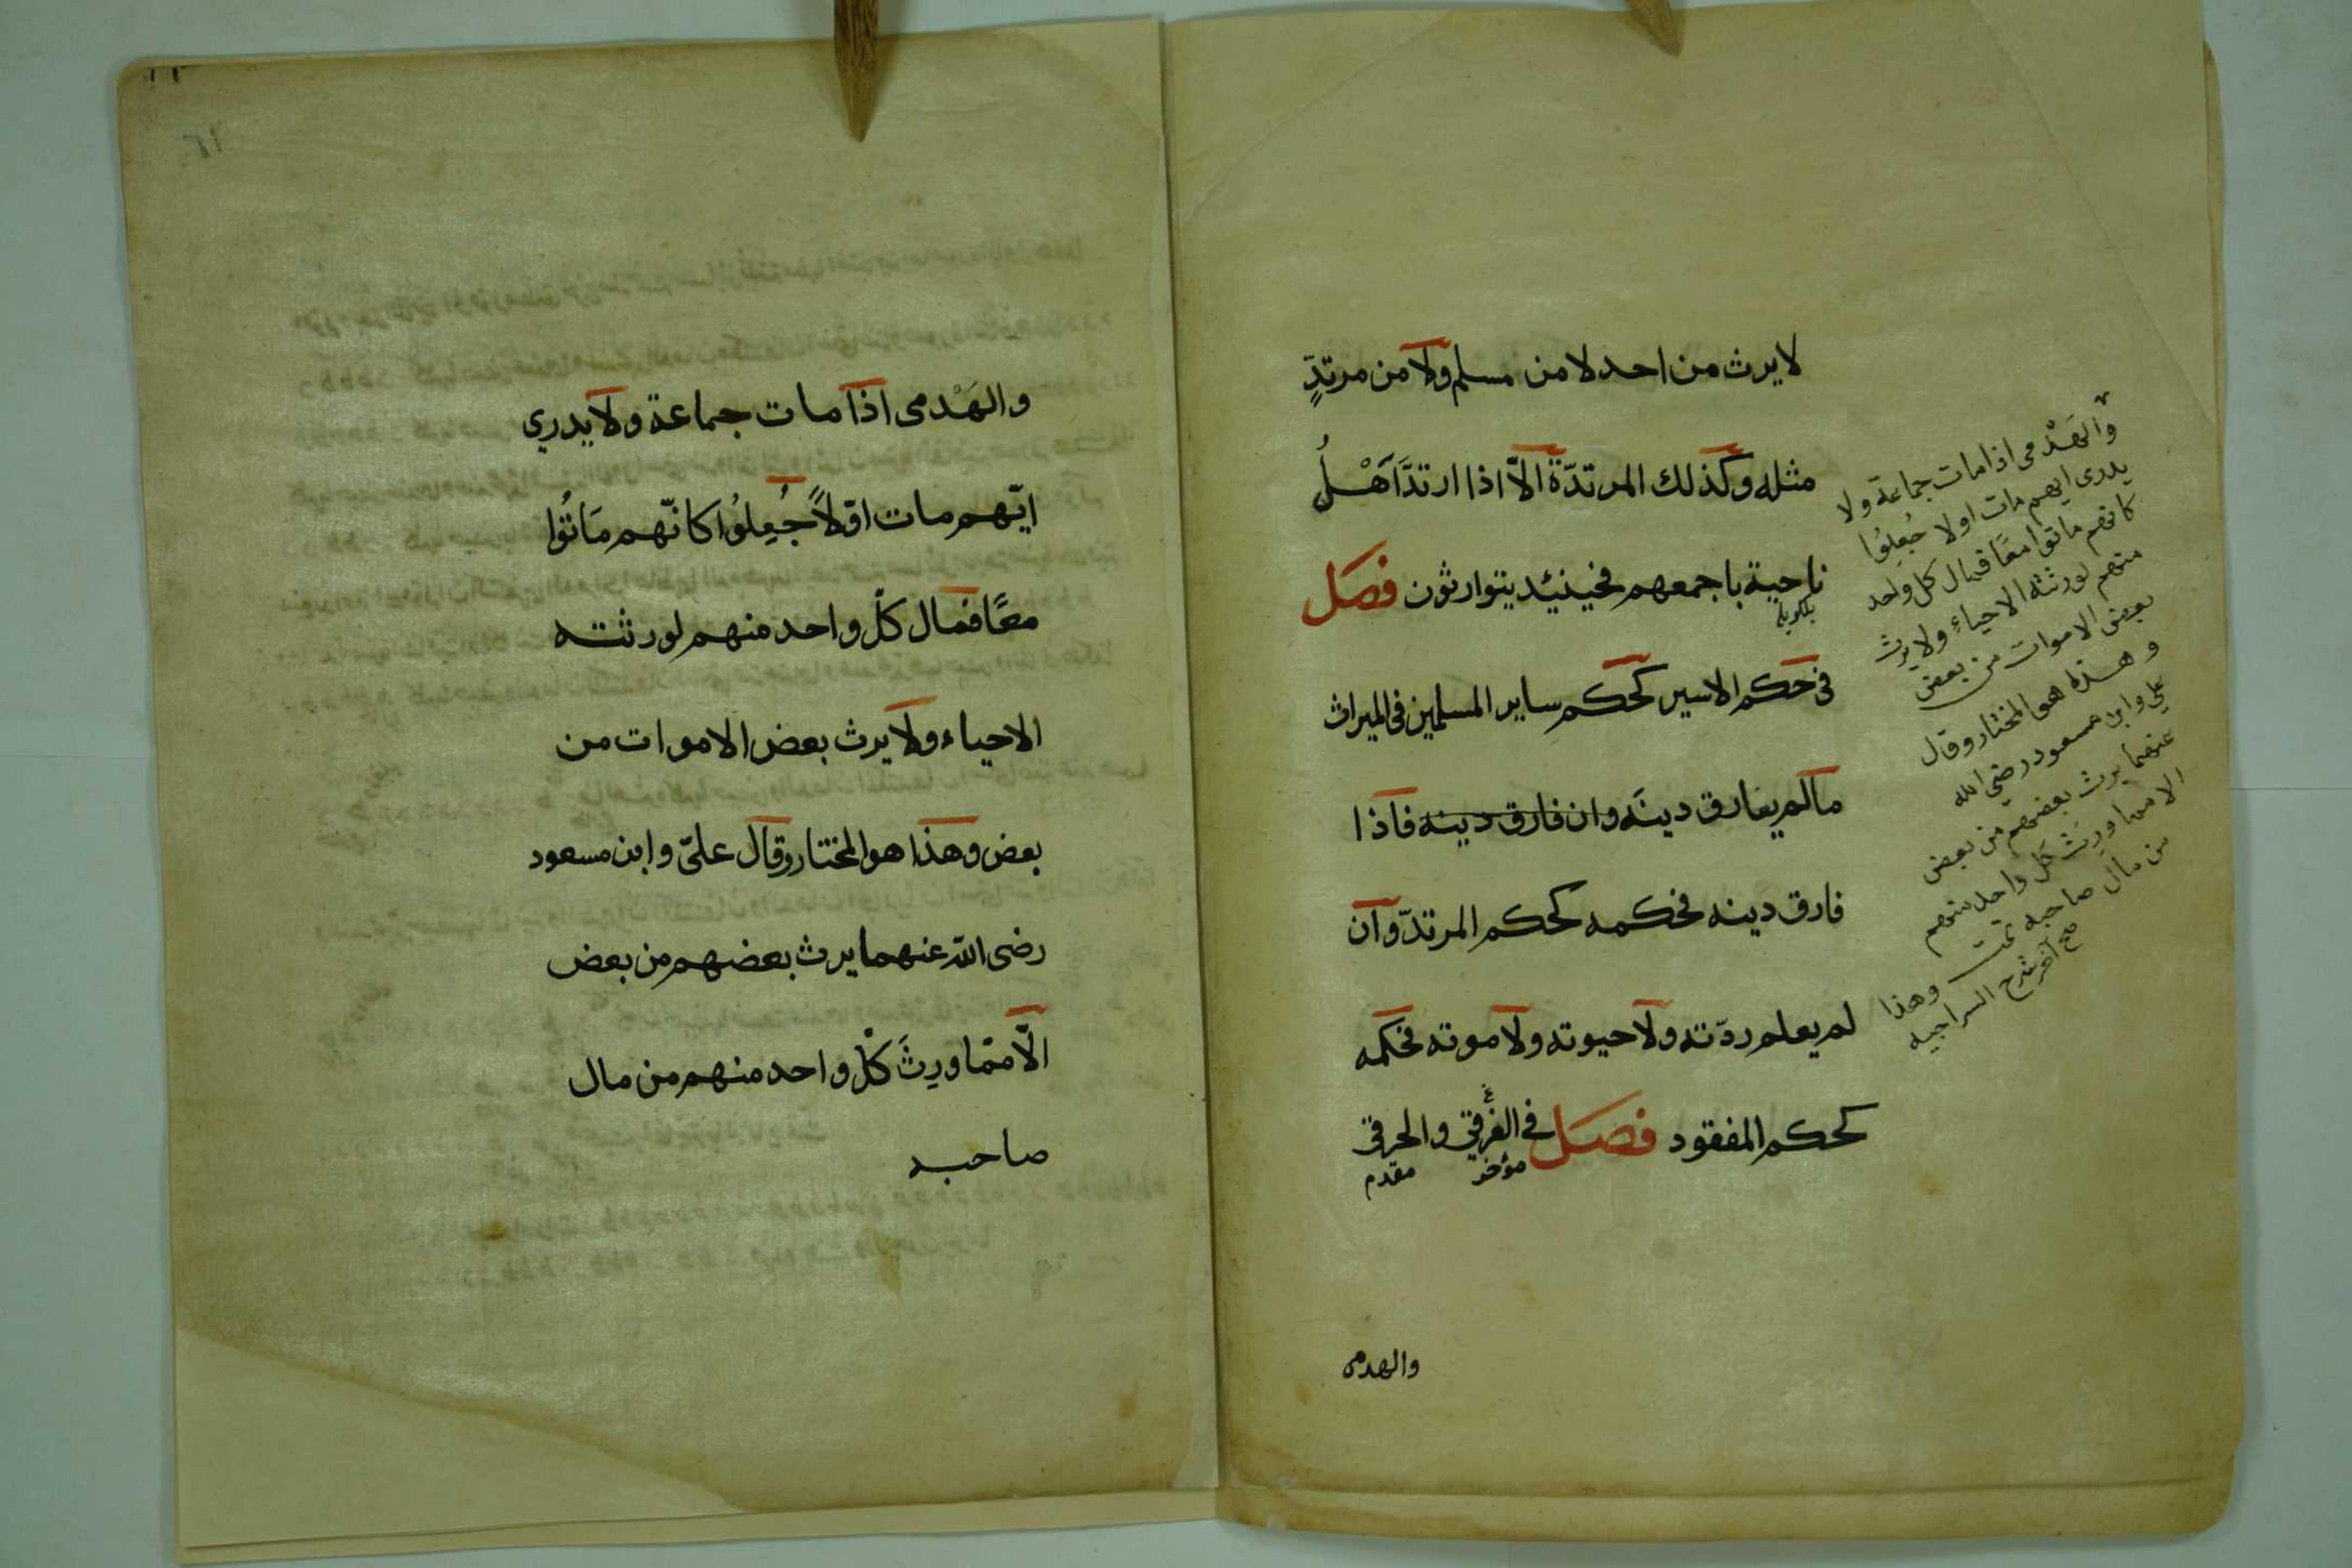 لا يرث من احد لا من مسلم ولا من مرتدٍّ
مثله وكذلك المرتدّة الاّ اذا ارتدَّ اَهْلُ
ناحية باجمعهم فحينئد يتوارثون فصل
فى حكم الاسير كحكمِ ساير المسلمين فى الميراث
مالم يفارق دينَه وان فارق دينه فاذا
فارق دينه فحكمه كحكم المرتدّ وان
لم يعلم ردّته ولا حيوته ولا موته فحكمه
كحكم المفقود فصل فى الغَرقي والحرقى
مؤخر مقدم
والهدمى
والهَدْمى اذا مات جماعة ولا
يدرى ايهم مات اولا جُعِلُوا
كانهم ماتوا معًا فمال كل واحد
منهم لورثته الاحياءِ ولا يرث
بعض الاموات من بعض
وهذا هو المختار وقال
علي وابن مسعود رضي الله
عنهما يرث بعضهم من بعض
الا مما ورث كل واحد منهم
من مال صاحبه تمت وهذا
صح آخر شرح السراجيه
١٦
والهَدْمى اذا مات جماعة ولا يدري
ايّهم مات اوّلاً جُعِلُوا كانّهم مَاتُوا
معًا فمال كلّ واحد منهم لورثته
الاحياء ولا يرث بعض الاموات من
بعض وهذا هو المختار وقال علىّ وابن مسعود
رضى الله عنهما يرث بعضهم من بعض
الاّ ممّا ورِثَ كلّ واحد منهم من مال
صاحبه